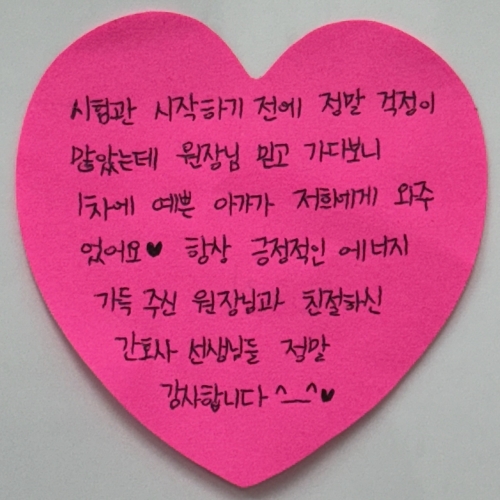 시험관 시작하기 전에 정말 걱정이
많았는데 원장님 믿고 가다보니
1차에 예쁜 아가가 저희에게 와주
었어요♥ 항상 긍정적인 에너지
가득 주신 원장님과 친절하신
간호사 선생님들 정말
감사합니다 ^__^♥